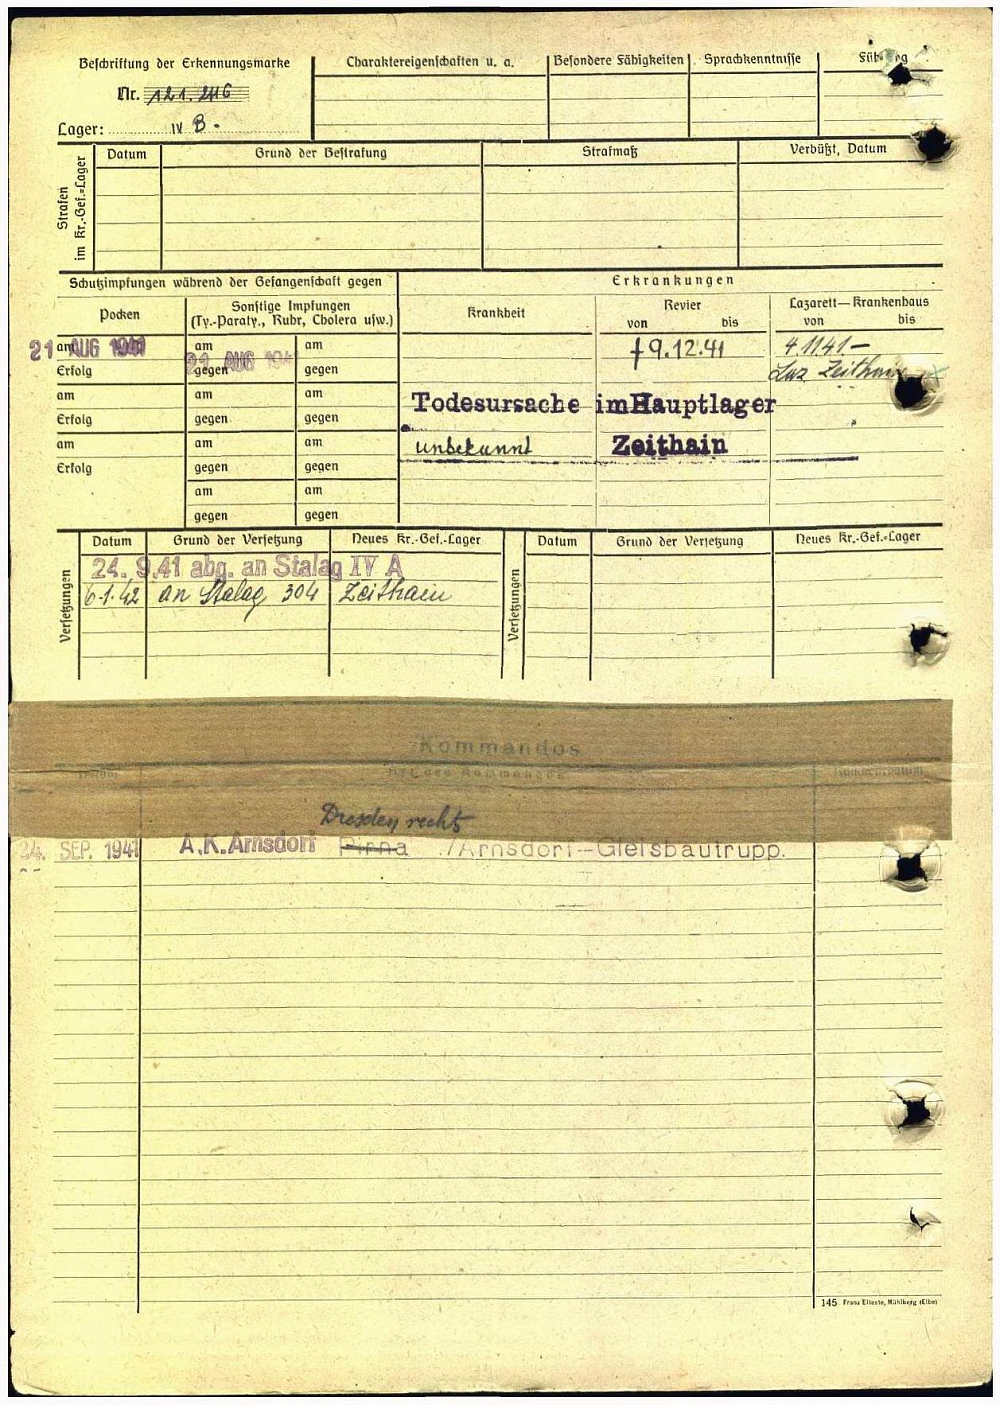 Beschriftung der Erkennungsmarke
Nr. 121.216
Lager: IV B.
Charaktereigenschaften u. a.
Besondere Fähigkeiten
Sprachkenntnisse
Strafen im Kr.-Gef.-Lager
Datum
Grund der Bestrafung
Strafmaß
Verbüßt, Datum
Schutzimpfungen während der Gefangenschaft gegen
Erkrankungen
Pocken
Sonstige Impfungen
(Ty.-Paraty., Ruhr, Cholera usw.)
Krankheit
Revier
von bis
Lazarett—Krankenhaus
von bis
am 21 AUG 1941
am
am
†9.12.41
4 11 41 –
Erfolg
gegen 21 AUG 194
gegen
Laz Zeithain
am
am
am
Todesursache im Hauptlager
Erfolg
gegen
gegen
am
am
am
unbekannt
Zeithain
Erfolg
gegen
gegen
am
am
gegen
gegen
Versetzungen
Datum
Grund der Versetzung
Neues Kr.-Gef.-Lager
Versetzungen
Datum
Grund der Versetzung
Neues Kr.-Gef.-Lager
24. 9.41 abg. an Stalag IV A
6.1.42 an Stalag 304 Zeithain
Kommandos
Datum
Art des Kommandos
Dresden rechts
24. SEP. 1941 A.K.Arnsdorf Pirna ./Arnsdorf—Gleisbautrupp.
145 Franz Elleste, Mühlberg (Elbe)